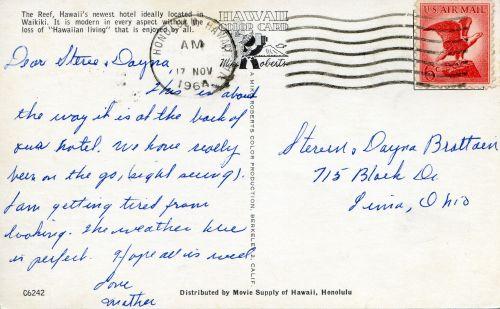 The Reef, Hawaii's newest hotel ideally located in
Waikiki. It is modern in every aspect without the
loss of "Hawaiian living" that is enjoyed by all.
HAWAII
COLOR CARD
Mike Roberts
U.S. AIR MAIL
6¢
HONOLULU HAWAII
AM
17 NOV
1964
Dear Steve & Dayna
This is about
the way it is at the back of
our hotel. We have really
been on the go, (sight seeing).
I am getting tired from
looking. The weather here
is perfect. Hope all is well
Love
Mother
Steven & Dayna Brattain
715 Black Dr
Lima, Ohio
A MIKE ROBERTS COLOR PRODUCTION, BERKELEY 2, CALIF.
C6242
Distributed by Movie Supply of Hawaii, Honolulu